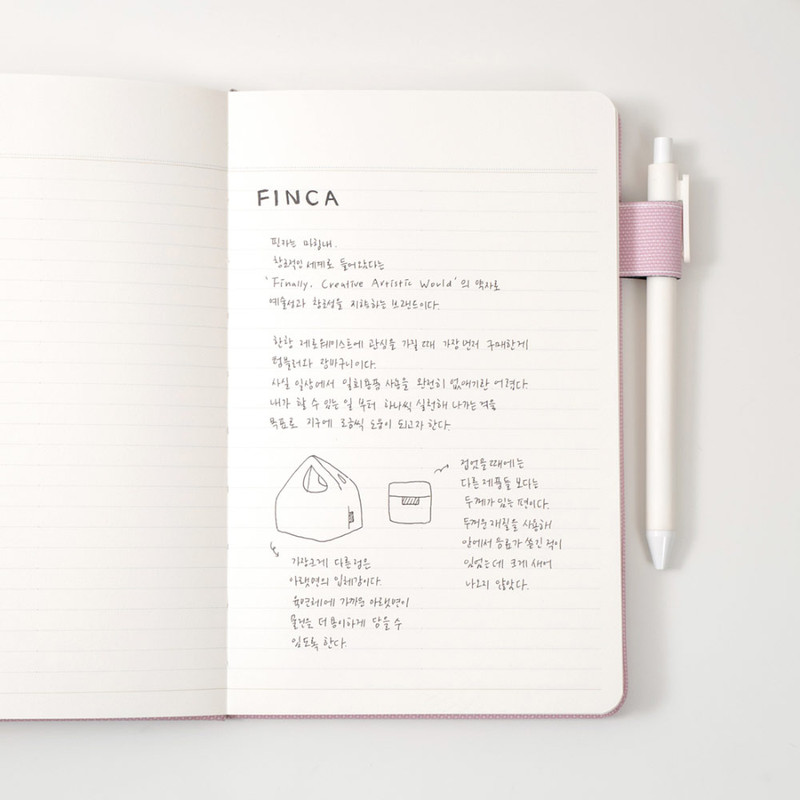 FINCA
핀카는 마침내.
창조적인 세계로 들어왔다는
'Finally. Creative Artistic World'의 약자로
예술성과 창조성을 지향하는 브랜드이다.
한창 제로웨이스트에 관심을 가질 때 가장 먼저 구매한게
텀블러와 장바구니이다.
사실 일상에서 일회용품 사용을 완전히 없애기란 어렵다.
내가 할 수 있는 일 부터 하나씩 실천해 나가는 것을
목표로 지구에 조금씩 도움이 되고자 한다.
접었을 때에는
다른 제품들 보다는
두께가 있는 편이다.
두꺼운 재질을 사용해
안에서 음료가 쏟긴 적이
있었는데 크게 새어
나오지 않았다.
가장 크게 다른 점은
아랫면의 입체감이다.
육면체에 가까운 아랫면이
물건을 더 용이하게 담을 수
있도록 한다.